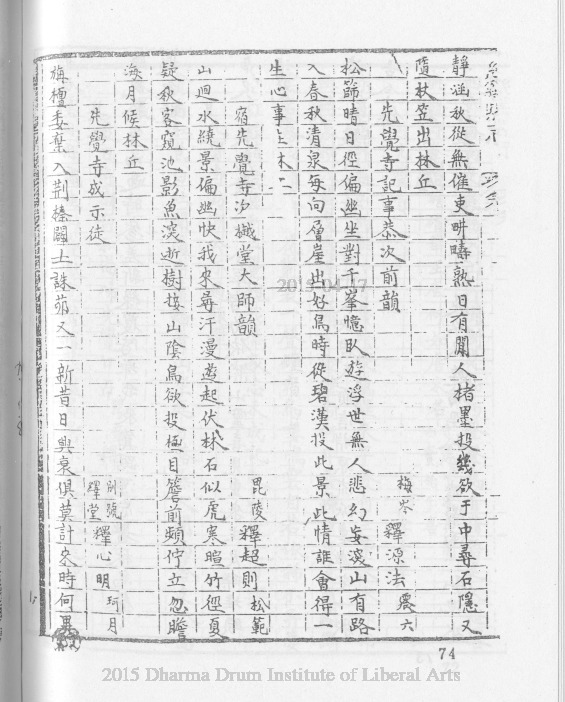 靜涵秋從無催吏畊疇熟日有閒人楮墨投幾欲于中尋石隱又
隨杖笠出林丘
先覺寺記事恭次前韻
梅岑釋源法震六
松篩晴日徑偏幽坐對千峯憶臥遊浮世無人悲幻妄深山有路
入春秋清泉每向層崖出好鳥時從碧漢投此景此情誰會得一
生心事
宿先覺寺次樾堂大師韻
毘陵釋超則松範
山迴水繞景偏幽快我來尋汗漫遊起伏林石似虎寒暄竹徑夏
疑秋客窺池影魚深逝樹接山陰鳥欲投極目簷前頻佇立忽瞻
海月候林丘
先覺寺成示徒
別號輝堂釋心明珂月
旃檀委棄入荆榛闢土誅茆又一新昔日興衰俱莫計來時何異
2015.04.17
74
2015 Dharma Drum Institute of Liberal Arts